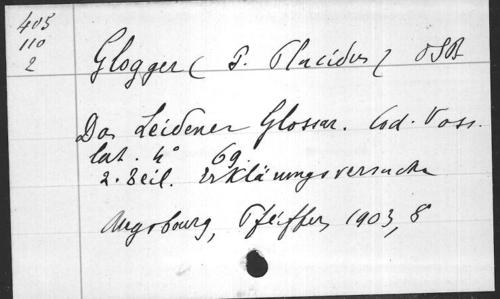 405
110
2
Glogger ( P. Placidus ) OSB
Das Leidener Glossar. Cod. Voss.
lat. 4° 69.
2. Teil. Erklärungsversuche
Augsbourg, Pfeiffer, 1903, 8°